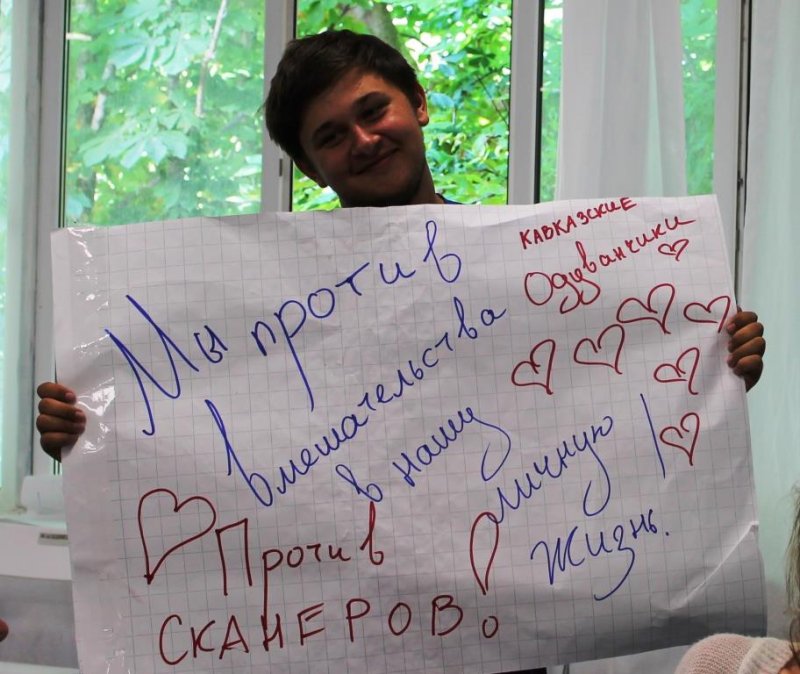 Мы против
вмешательства
в нашу
личную
жизнь.
КАВКАЗСКИЕ
Одуванчики
Против
СКАНЕРОВ!